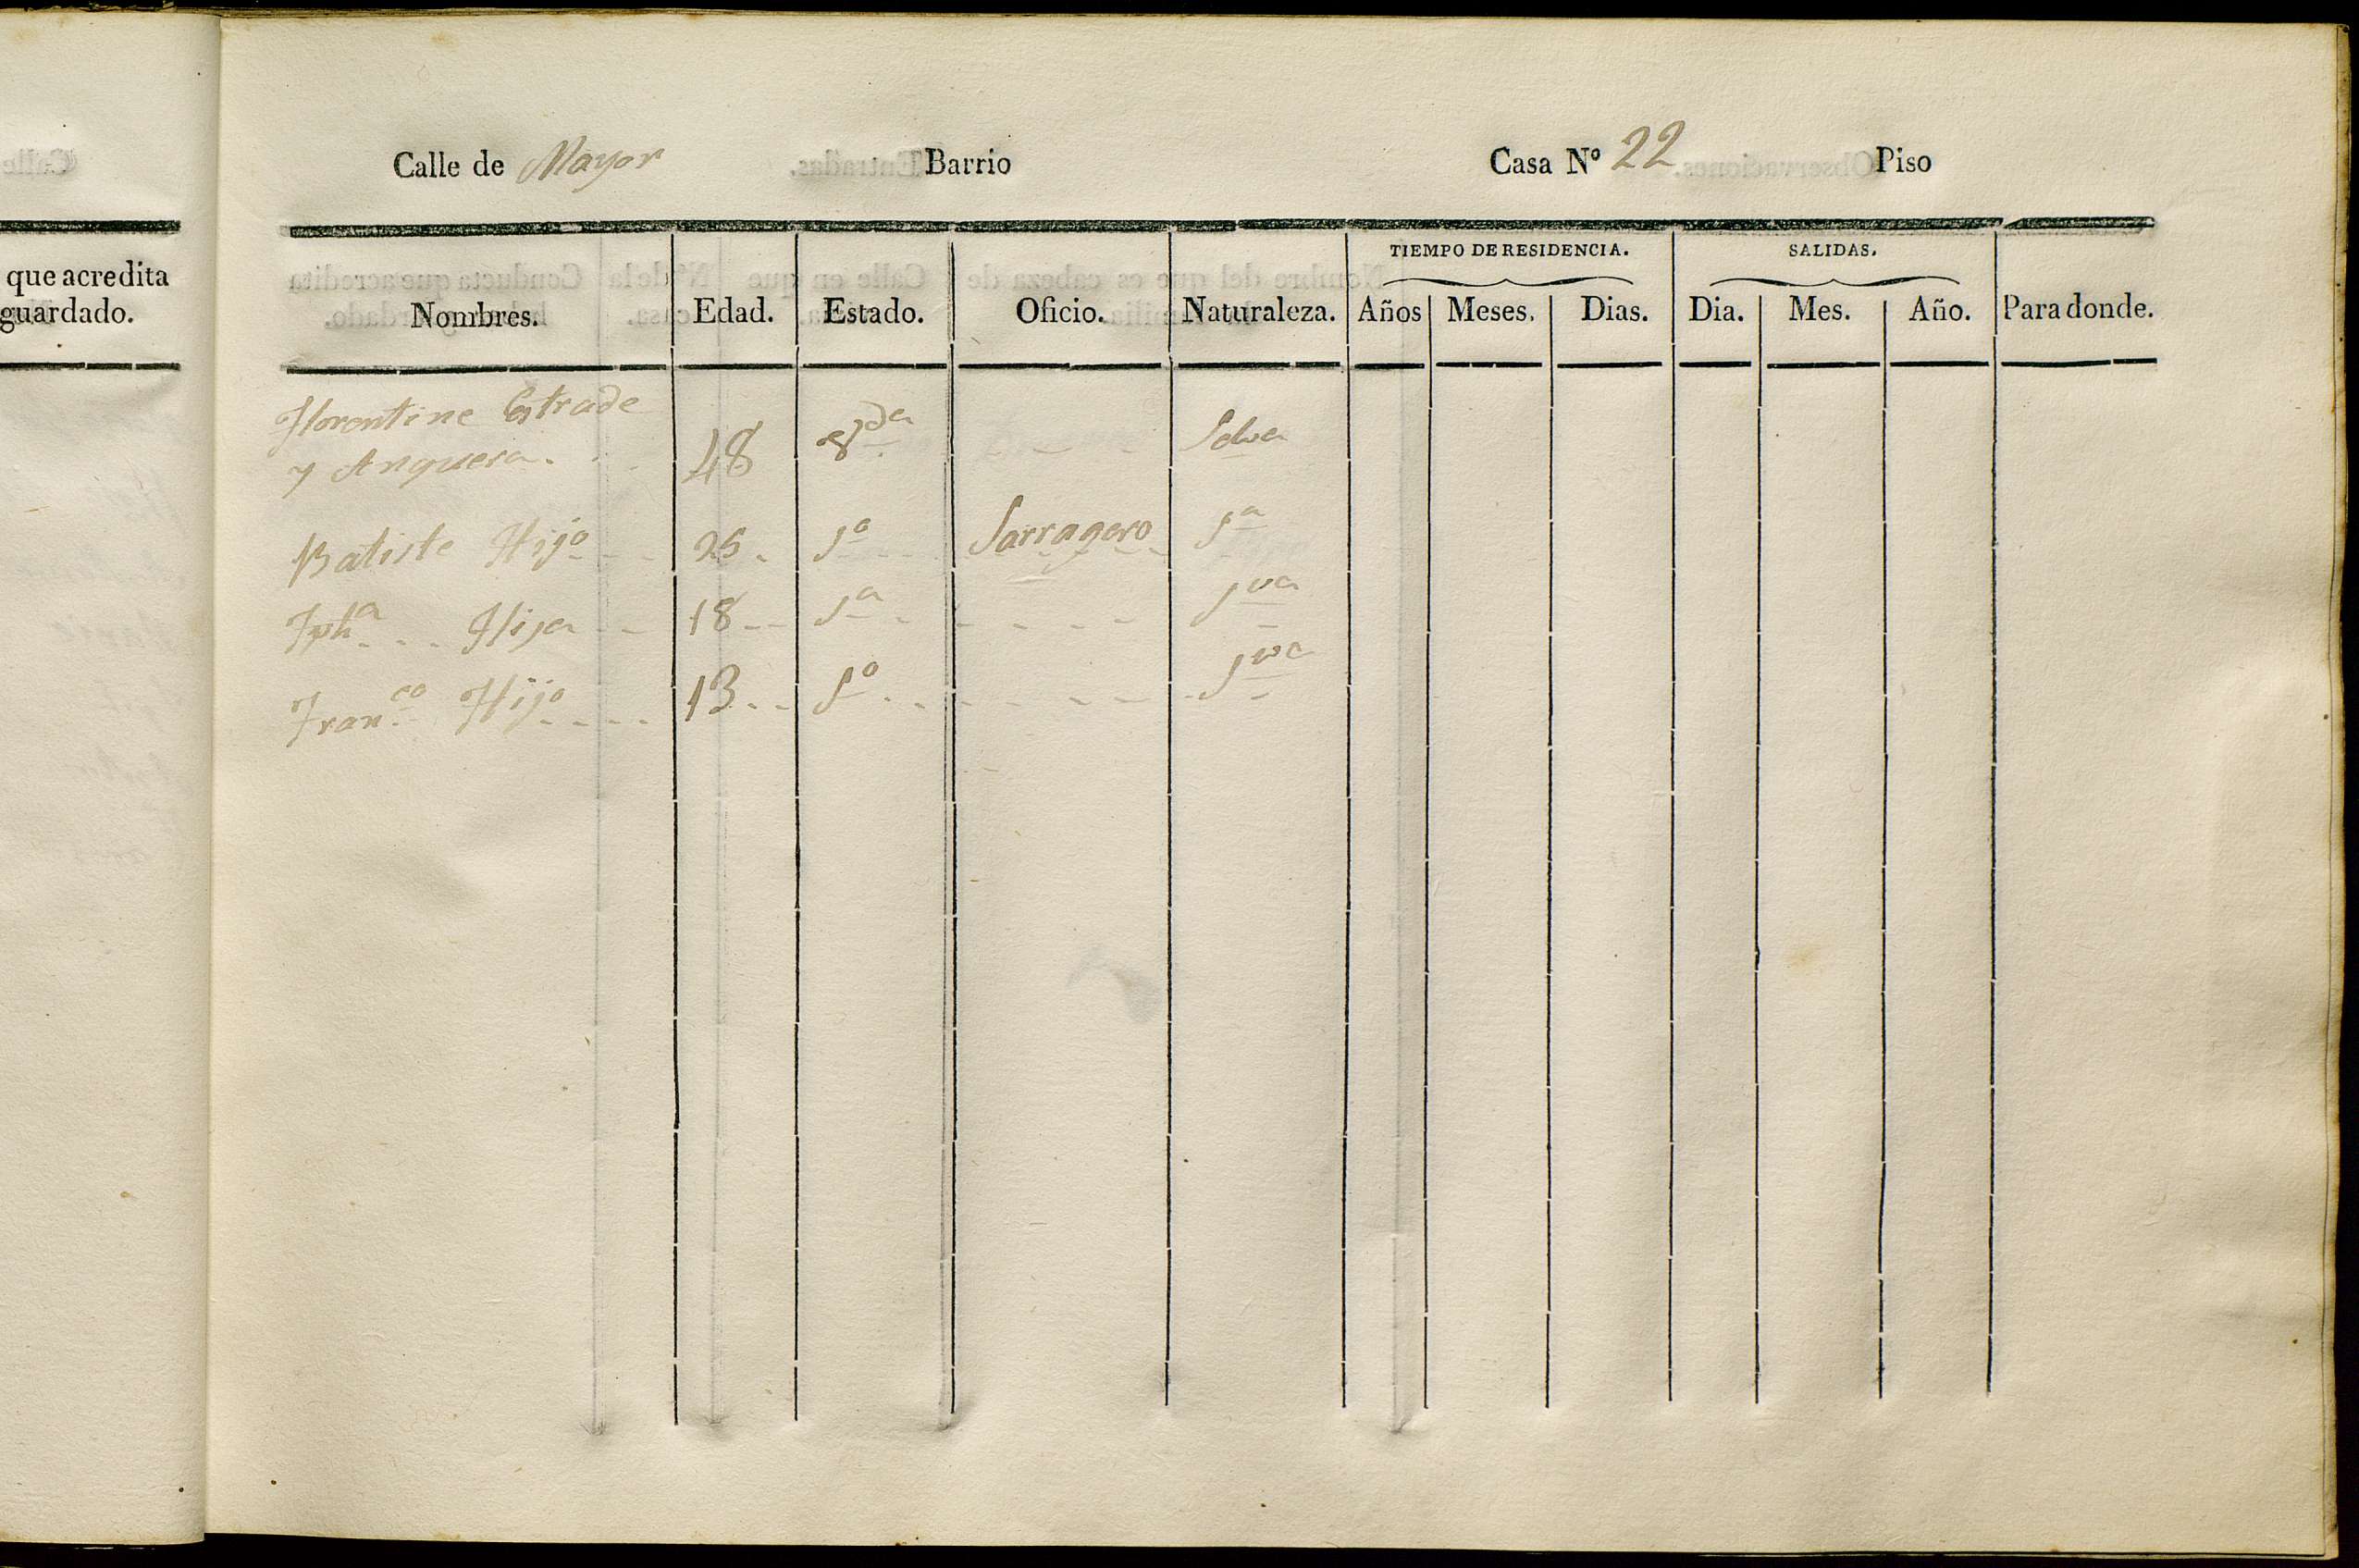 que acredita
guardado.
Calle de Mayor Barrio Casa Nº 22 Piso
TIEMPO DE RESIDENCIA. SALIDAS.
Nombres. Edad. Estado. Oficio. Naturaleza. Años Meses. Dias. Dia. Mes. Año. Para donde.
Florentine Estrade
y Anguera. 48 Vda Selva
Batiste Hijo 25 Sº Sarragero Sª
Jphª Hija 18 Sª Sva
Franco Hijo 13 Sº Sva